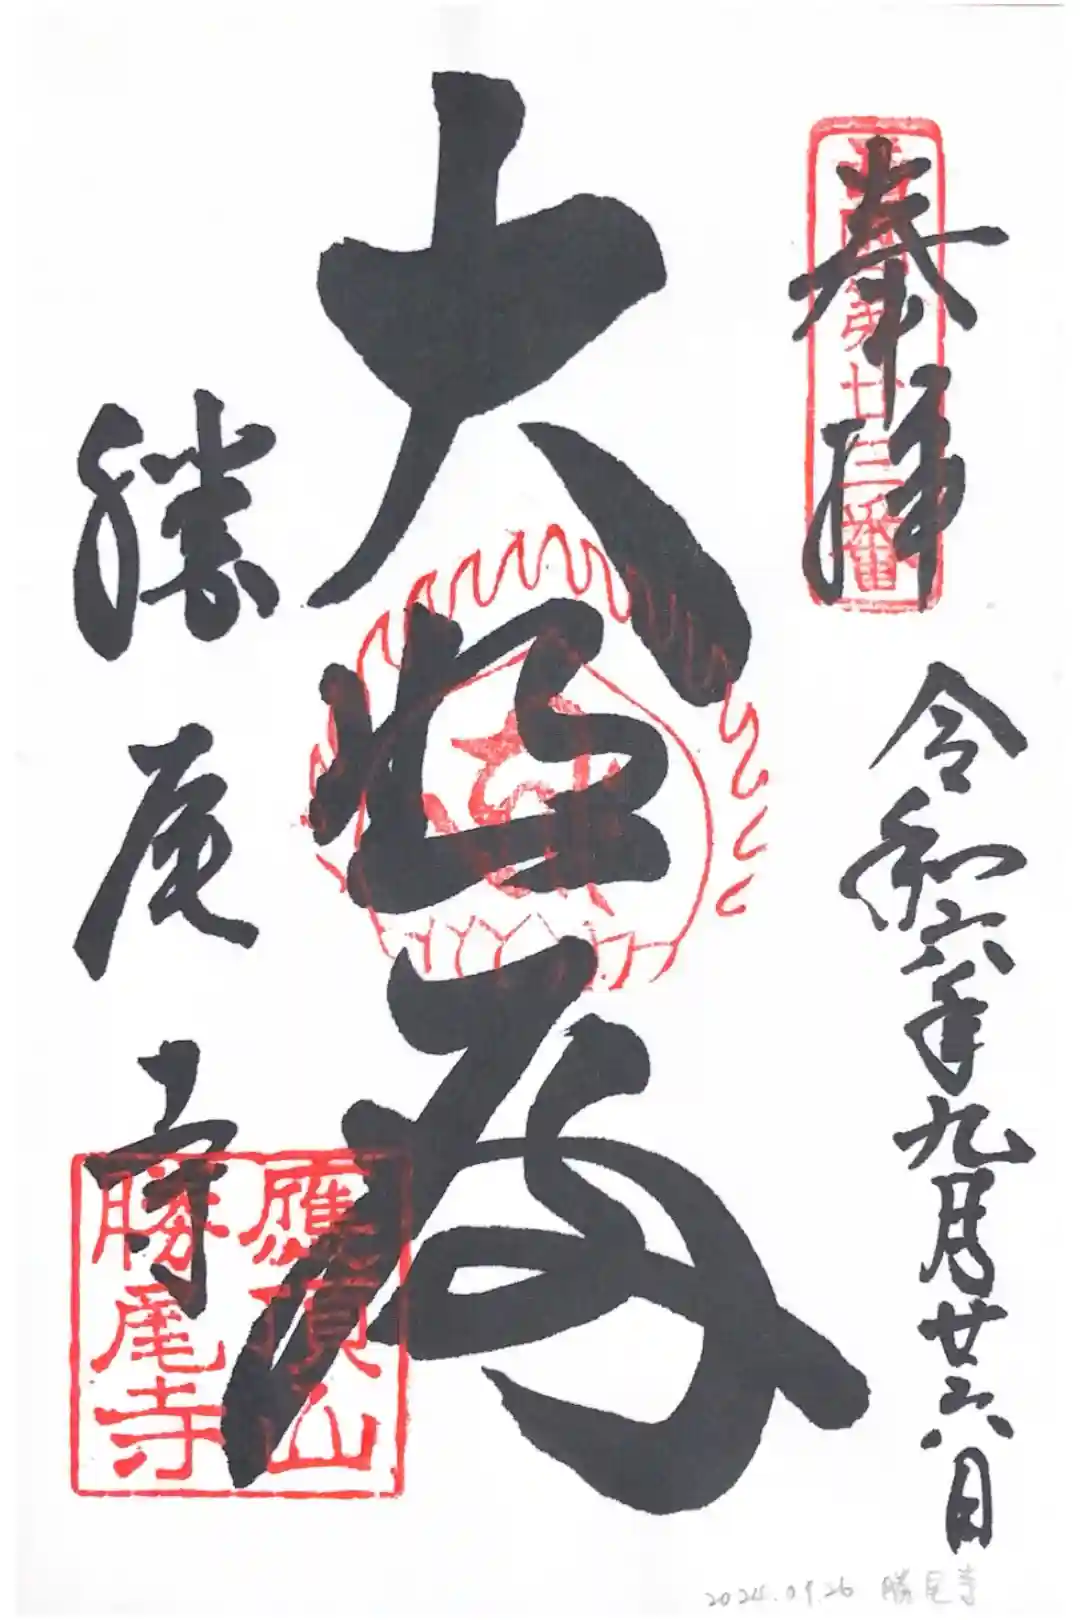 奉拝
西国第廿三番
令和六年九月廿六日
大悲殿
勝尾寺
應頂山
勝尾寺
2024.09.26 勝尾寺